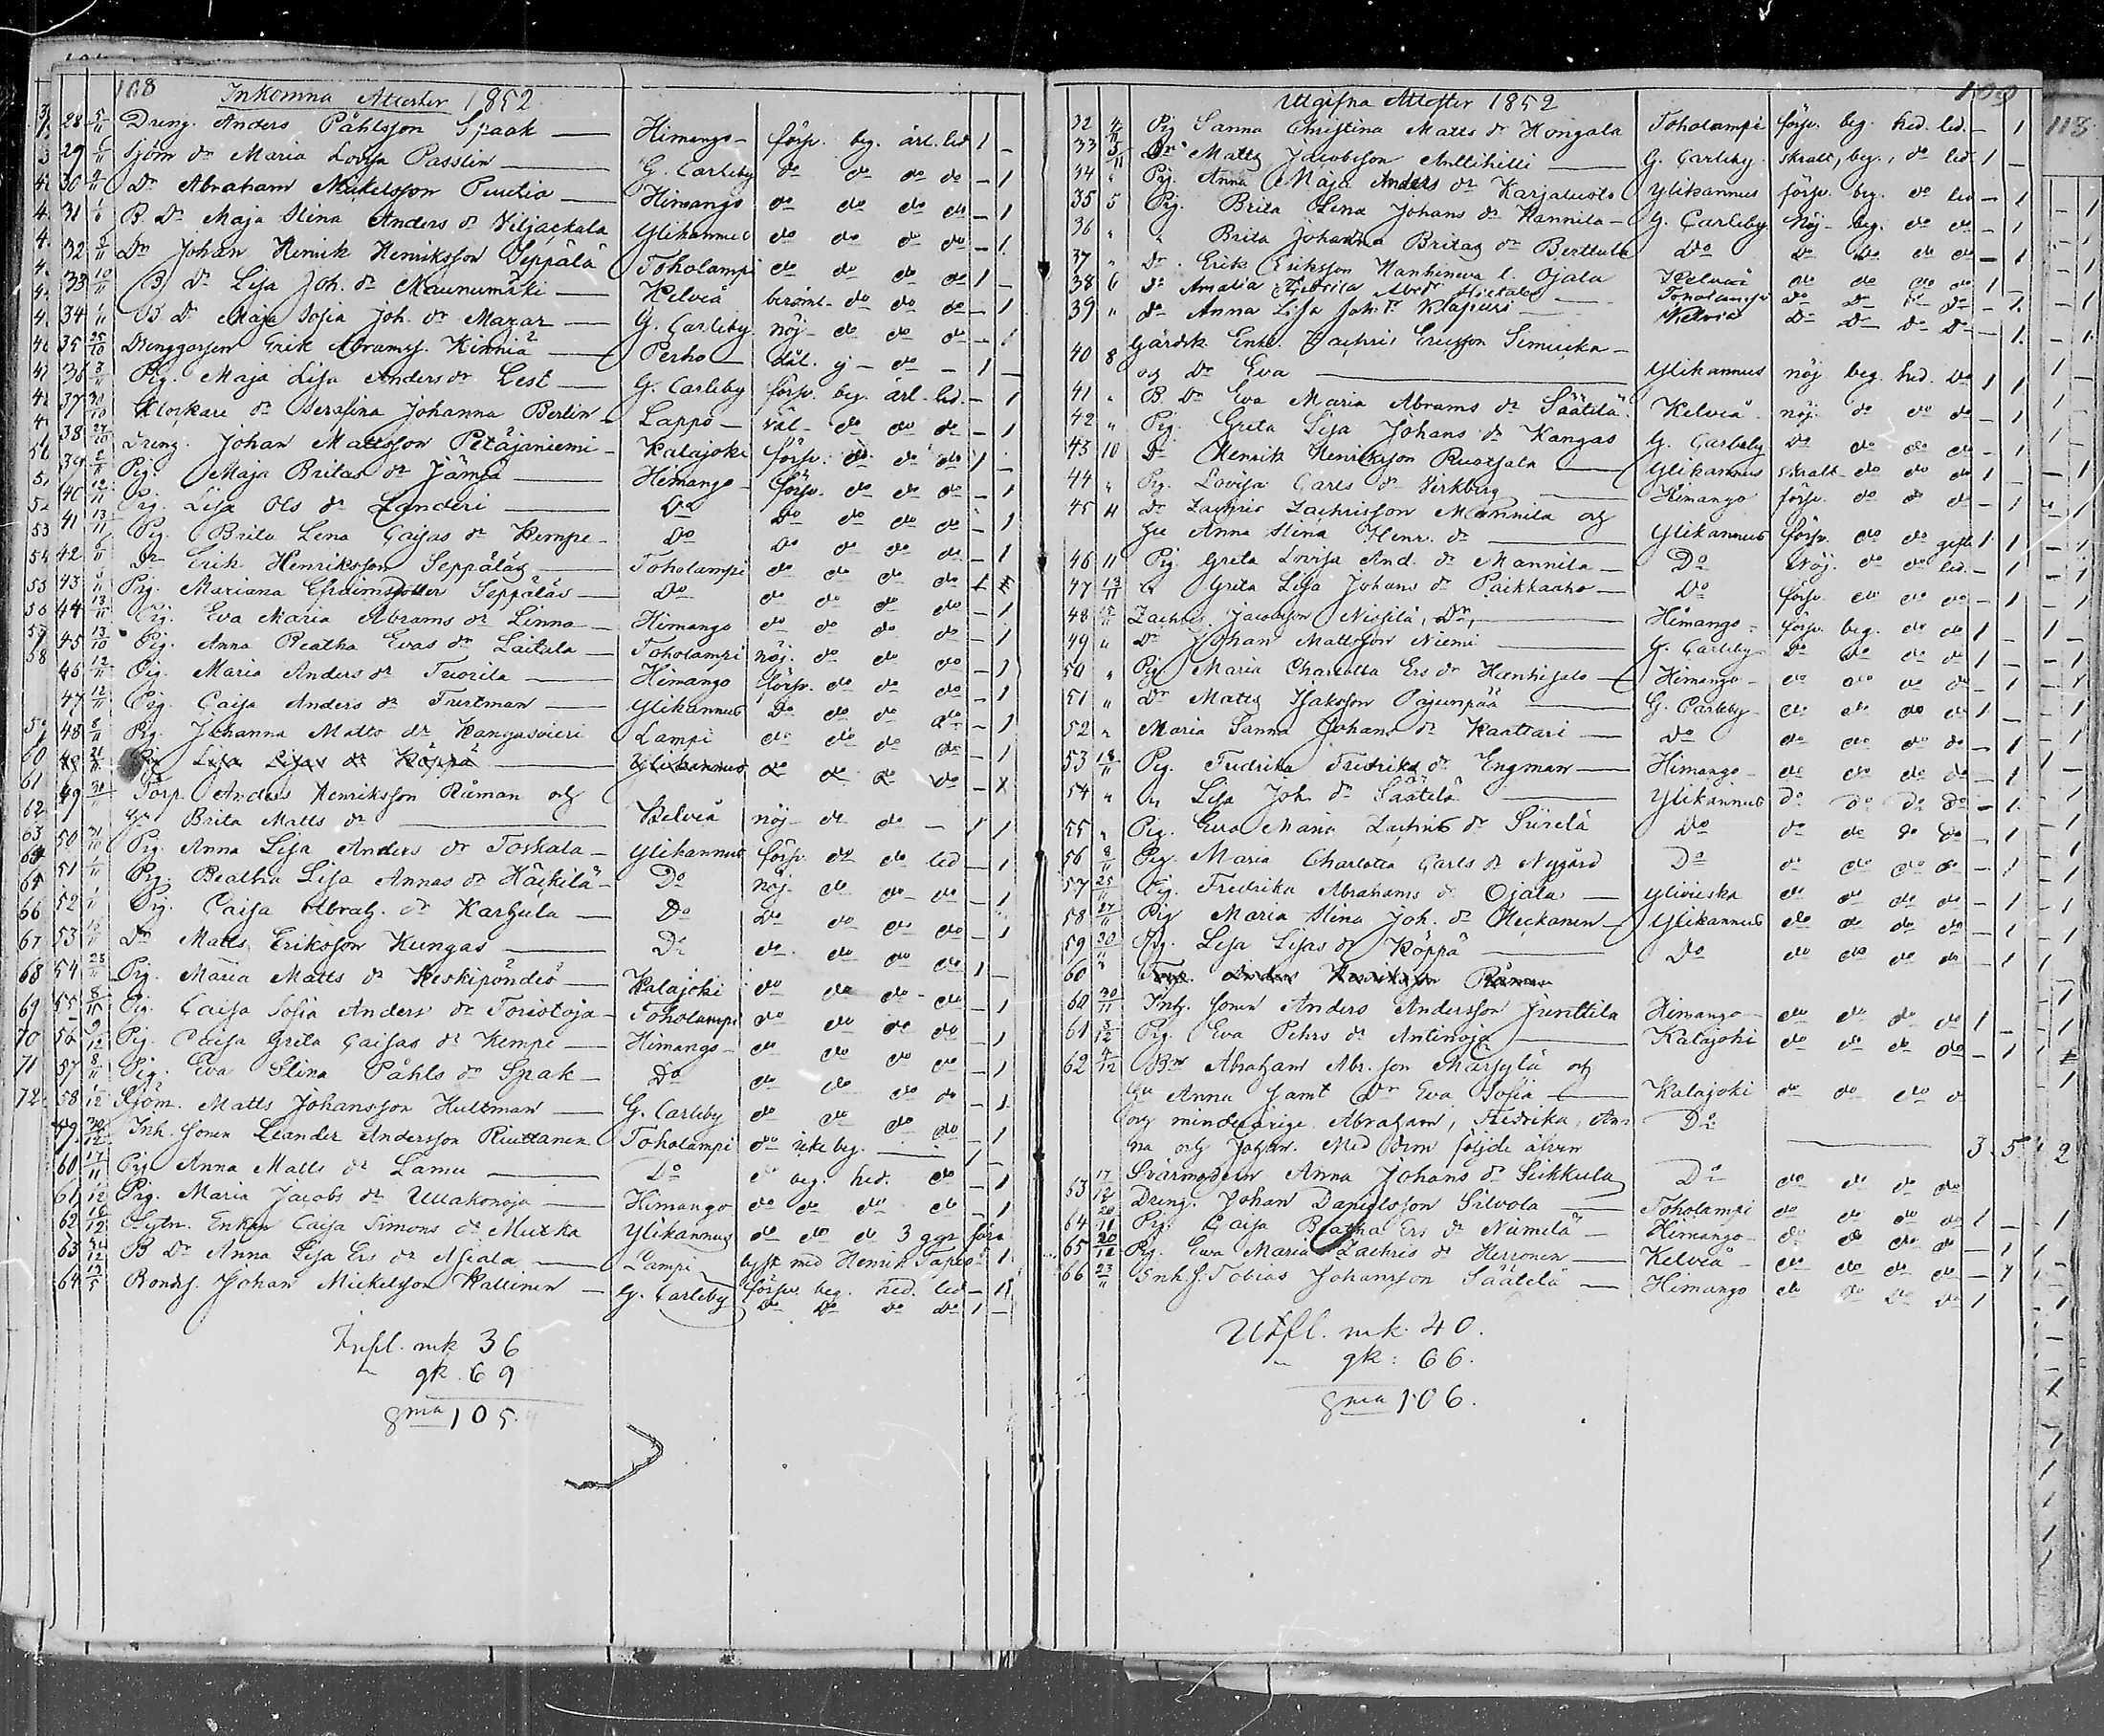 108 Inkomna Attester 1852
28 5/11 Dreng. Anders Påhlsson Spaak — Himango förpr. beg. ärl. led 1 –
29 6/11 Sjöm dr Maria Lovisa Passlin — G. Carleby do do do do – 1
30 9/11 Dr Abraham Mickelsson — Himango do do do do – 1
31 B. Dr Maja Stina Anders dr Viljackala Ylikannus do do do do – 1
32 Dr Johan Henrik Henriksson Seppälä Toholampi do do do do 1 –
33 10/11 B Dr Lisa Joh. dr Maunumäki — Kelviå beröml. do do do – 1
34 B Dr Maja Sofia Joh. dr — G. Carleby nöj. do do do – 1
35 25/10 Drenggossen Erik Abrams. — Perho ej do – 1 –
36 3/11 Pig. Maja Lisa Anders dr Lest — G. Carleby förpr. beg. ärl. led. – 1
37 30/10 Klockare dr Serafina Johanna Berlin Lappo väl do do do – 1
38 27/10 Dreng. Johan Mattsson Pitäjäniemi Kalajoki förpr. do do do 1 –
39 Pig. Maja Britas dr Jämsä — Himango förpr. do do do – 1
40 12/11 Pig. Lisa Ols dr Landeri — Do Do do do do – 1
41 13/11 Pig. Brita Lena Caisas dr Kempe Do Do do do do – 1
42 Dr Erik Henriksson Seppäläs — Toholampi do do do do
43 Pig. Mariana Efraimsdotter Seppäläs — Do do do do do – 1
44 13/11 Pig. Eva Maria Abrams dr Linna — Himango do do do do – 1
45 13/10 Pig. Anna Beatha Evas dr Laitala — Toholampi nöj. do do do – 1
46 12/11 Pig. Maria Anders dr — Himango förpr. do do do – 1
47 12/11 Pig. Caisa Anders dr Trustman — Ylikannus Do do do do – 1
48 8/11 Pig. Johanna Matts dr Kangasvieri Lampi do do do do – 1
Lisa Lisas dr Köppä — Ylikannus do do do do – x
49 30/11 Torp. Anders Henriksson Råman och
Hu Brita Matts dr — Kelviå nöj do do — 1 1
50 31/10 Pig. Anna Lisa Anders dr Toskala Ylikannus förpr do do led – 1
51 Pig. Beatha Lisa Annas dr Häckilä Do nöj do do do – 1
52 Pig. Caisa Abrah. dr Karhula — Do Do do do do – 1
53 Dr Matts Eriksson Kungas — Do do do do do 1 –
54 23/11 Pig. Maria Matts dr Keskipöndes — Kalajoki do do do do – 1
55 8/11 Pig. Caisa Sofia Anders dr Toholampi do do do do – 1
56 9/12 Pig. Caisa Greta Caisas dr Kempe — Himango do do do do – 1
57 8/11 Pig. Eva Stina Påhls dr Spak — Do do do do do – 1
58 Sjöm. Matts Johansson Hultman — G. Carleby do do do do
59 30/12 Inh. sonen Leander Andersson Ruuttanen Toholampi do icke beg. 1 –
60 17/11 Pig Anna Matts dr Lamu — Do do beg. hed. do – 1
61 Pig. Maria Jacobs dr Ullakonoja — Himango do do do do – 1
62 Enkan Caisa Simons dr Ylikannus do do do 3 ggr
63 B Dr Anna Lisa Ers dr Lampi lyst med Henrik Tapio 1
64 Bondes. Johan Mickelsson Kallinen — G. Carleby förpr. beg. hed. led – 1
Do Do Do Do 1 –
Infl. mk 36
" gk. 69
Sma 105.
109 Utgifna Attester 1852
32 Pig Sanna Christina Matts dr Hongala Toholampi förpr. beg. hed. led. – 1
33 Dr Matts Jacobsson Anttihilli — G. Carleby skralt, beg., do led 1 –
34 " Pig. Anna Maja Anders dr Karjaluoto Ylikannus förpr. beg. do led – 1
35 5 Pig. Brita Lena Johans dr Kannila — G. Carleby Nöj. beg. do do – 1
36 " " Brita Johanna Britas dr Berttula Do Do Do do do – 1
37 " Dr. Erik Eriksson Hanhineva l. Ojala Kelviå do do do do 1
38 6 Dr Amalia Fredrika Abr. dr — Toholampi do Do do Do – 1.
39 " do Anna Lisa Joh. dr Klapuri — Kelviå Do Do Do Do – 1.
40 8 Gårdsk Enkl. Zachris Ericsson —
och Dr Eva — Ylikannus nöj beg. hed. Do 1 1
41 " B. Dr Eva Maria Abrams dr Säätelä Kelviå nöj do do do – 1
42 " Pig. Greta Lisa Johans dr Kangas G. Carleby Do do do do – 1
43 10 Dr Henrik Henriksson Ruotsala — Ylikannus skralt do do do 1 –
44 " Pig. Lovisa Carls dr — Himango förpr do do do – 1
45 11 Dr Zachris Zachrisson Mannila och
Hu Anna Stina Henr. dr — Ylikannus förpr. do do gift 1 1
46 11 Pig Greta Lovisa And. dr Mannila — Do Nöj. do do led. – 1
47 13/11 " Greta Lisa Johans dr Paikkaaho — Do förpr do do do – 1
48 15/11 Zachris Jacobsson Nissilä, Dr, — Himango förpr beg. do do 1 –
49 " Dr Johan Mattsson Niemi — G. Carleby Do do do do 1 –
50 " Pig Maria Charlotta Ers dr — Himango do do do do – 1
51 " Dr Matts Isaksson Pajunpää — G. Carleby do do do do 1 –
52 " Maria Sanna Johans dr Kaattari — Do do do do do – 1
53 18/11 Pig. Fredrika Fredriks dr Engman — Himango do do do do – 1
54 " " Lisa Joh. dr Säätelä — Ylikannus do do do do – 1.
55 " Pig. Eva Maria Zachris dr Siirilä Do do do do do – 1
56 8/11 Pig. Maria Charlotta Carls dr Nygård Do do do do do – 1
57 25/11 Pig. Fredrika Abrahams dr Ojala — Ylivieska do do do do – 1
58 27/11 Pig Maria Stina Joh. dr — Ylikannus do do do do – 1
59 30/11 Pig. Lisa Lisas dr Köppä — Do do do do do – 1
60 " Torp. Anders Henriksson Råman
60 30/11 Inh. sonen Anders Andersson Junttila Himango do do do do 1 –
61 3/12 Pig. Eva Pehrs dr Antinoja — Kalajoki do do do do – 1
62 4/12 Bn Abraham Abr. son Marjylä och
Hu Anna samt Dr Eva Sofia — Kalajoki do do do
och minderårige Abraham, Fredrika, An- Do
na och Johan. Med dem följde älven — 3. 5.
Svärmodern Anna Johans dr Sickkula Do do do do do
63 17/12 Dreng. Johan Danielsson Silvola — Toholampi do do do do 1 –
64 Pig. Caisa Beatha Ers dr Niemelä — Himango do do do do – 1
65 Pig. Eva Maria Zachris dr Herronen — Kelviå do do do do – 1
66 23/11 Inh. s. Tobias Johansson Säätelä — Himango do do Do Do 1
Utfl. mk. 40.
" gk: 66.
Sma 106.
118